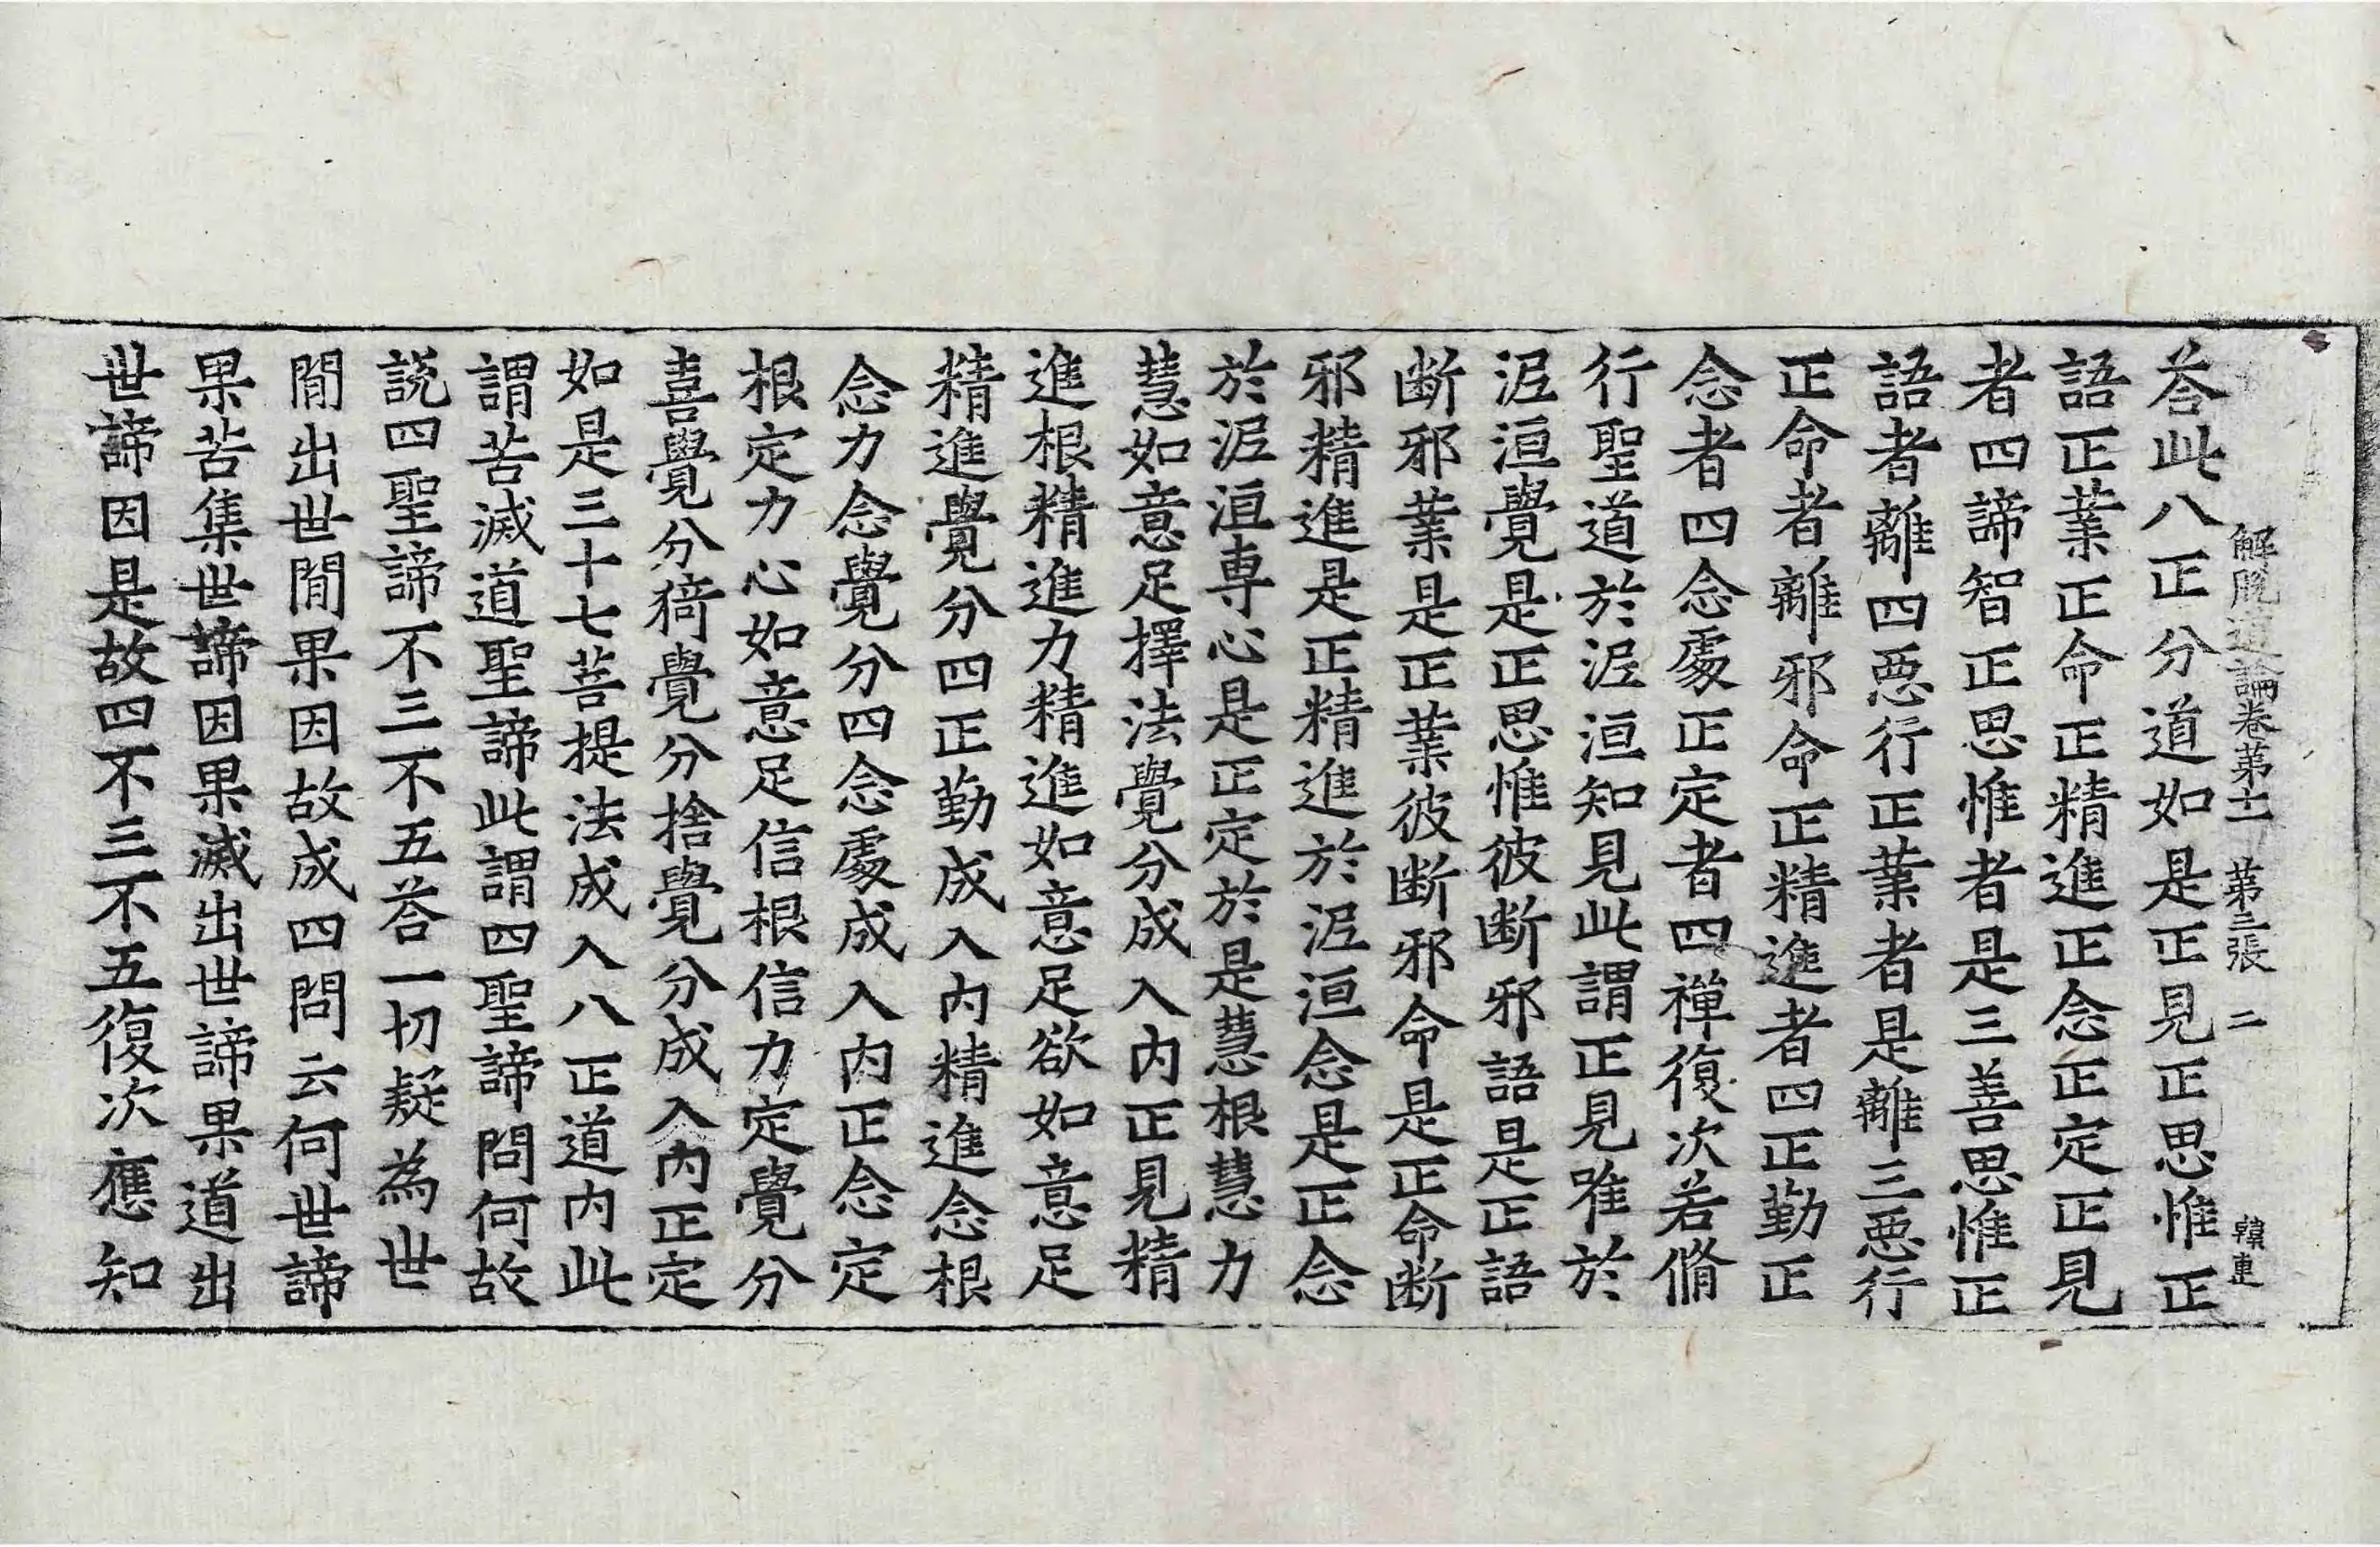 解脫道論卷第十一 第三張 二 韓連
荅此八正分道如是正見正思惟正
語正業正命正精進正念正定正見
者四諦智正思惟者是三善思惟正
語者離四惡行正業者是離三惡行
正命者離邪命正精進者四正勤正
念者四念處正定者四禪復次若脩
行聖道於泥洹知見此謂正見唯於
泥洹覺是正思惟彼断邪語是正語
断邪業是正業彼断邪命是正命断
邪精進是正精進於泥洹念是正念
於泥洹專心是正定於是慧根慧力
慧如意足擇法覺分成入內正見精
進根精進力精進如意足欲如意足
精進覺分四正勤成入內精進念根
念力念覺分四念處成入內正念定
根定力心如意足信根信力定覺分
喜覺分猗覺分捨覺分成入內正定
如是三十七菩提法成入八正道內此
謂苦滅道聖諦此謂四聖諦問何故
說四聖諦不三不五荅一切疑為世
間出世間果因故成四問云何世諦
果苦集世諦因果滅出世諦果道出
世諦因是故四不三不五復次應知